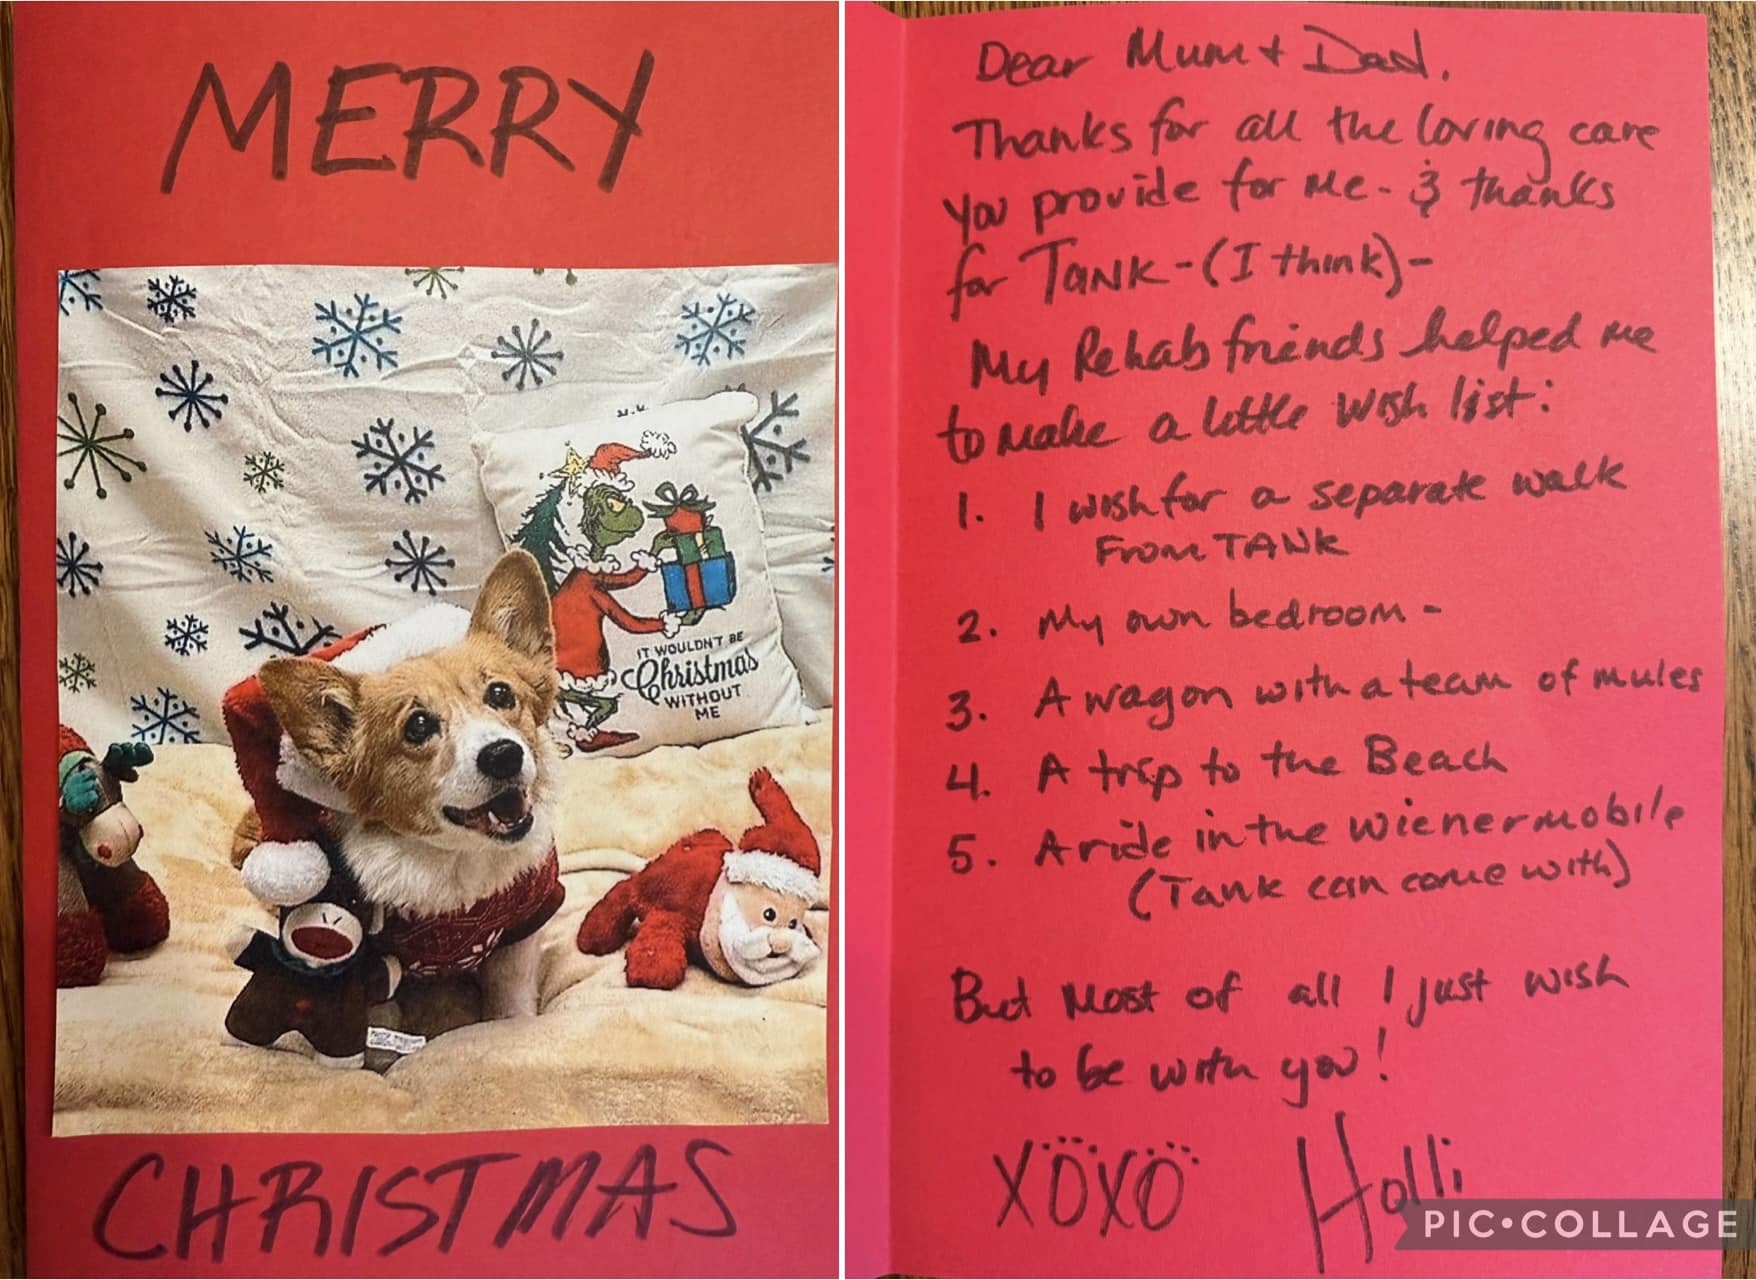 MERRY
IT WOULDN'T BE
Christmas
WITHOUT
ME
CHRISTMAS
Dear Mum + Dad.
Thanks for all the loving care
you provide for me - & thanks
for TANK - (I think) -
My Rehab friends helped me
to make a little wish list:
1. I wish for a separate walk
From TANK
2. My own bedroom -
3. A wagon with a team of mules
4. A trip to the Beach
5. A ride in the wienermobile
(Tank can come with)
But most of all I just wish
to be with you!
XOXO Holli
PIC•COLLAGE